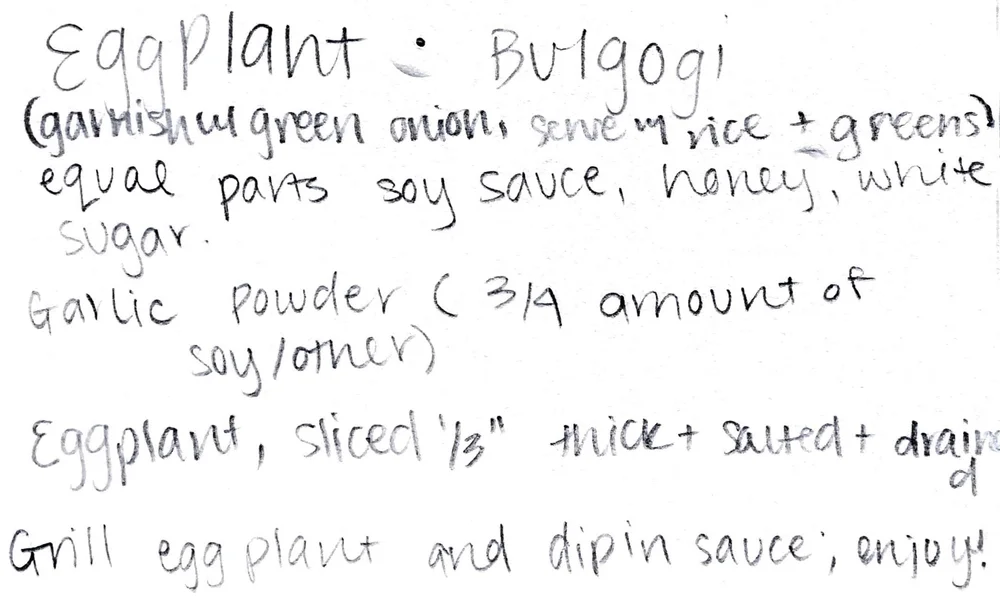 Eggplant · Bulgogi
(garnish w/ green onion, serve w/ rice + greens)
equal parts soy sauce, honey, white
sugar.
Garlic powder (3/4 amount of
soy/other)
Eggplant, sliced 1/3" thick + salted + draine
d
Grill eggplant and dip in sauce; enjoy!